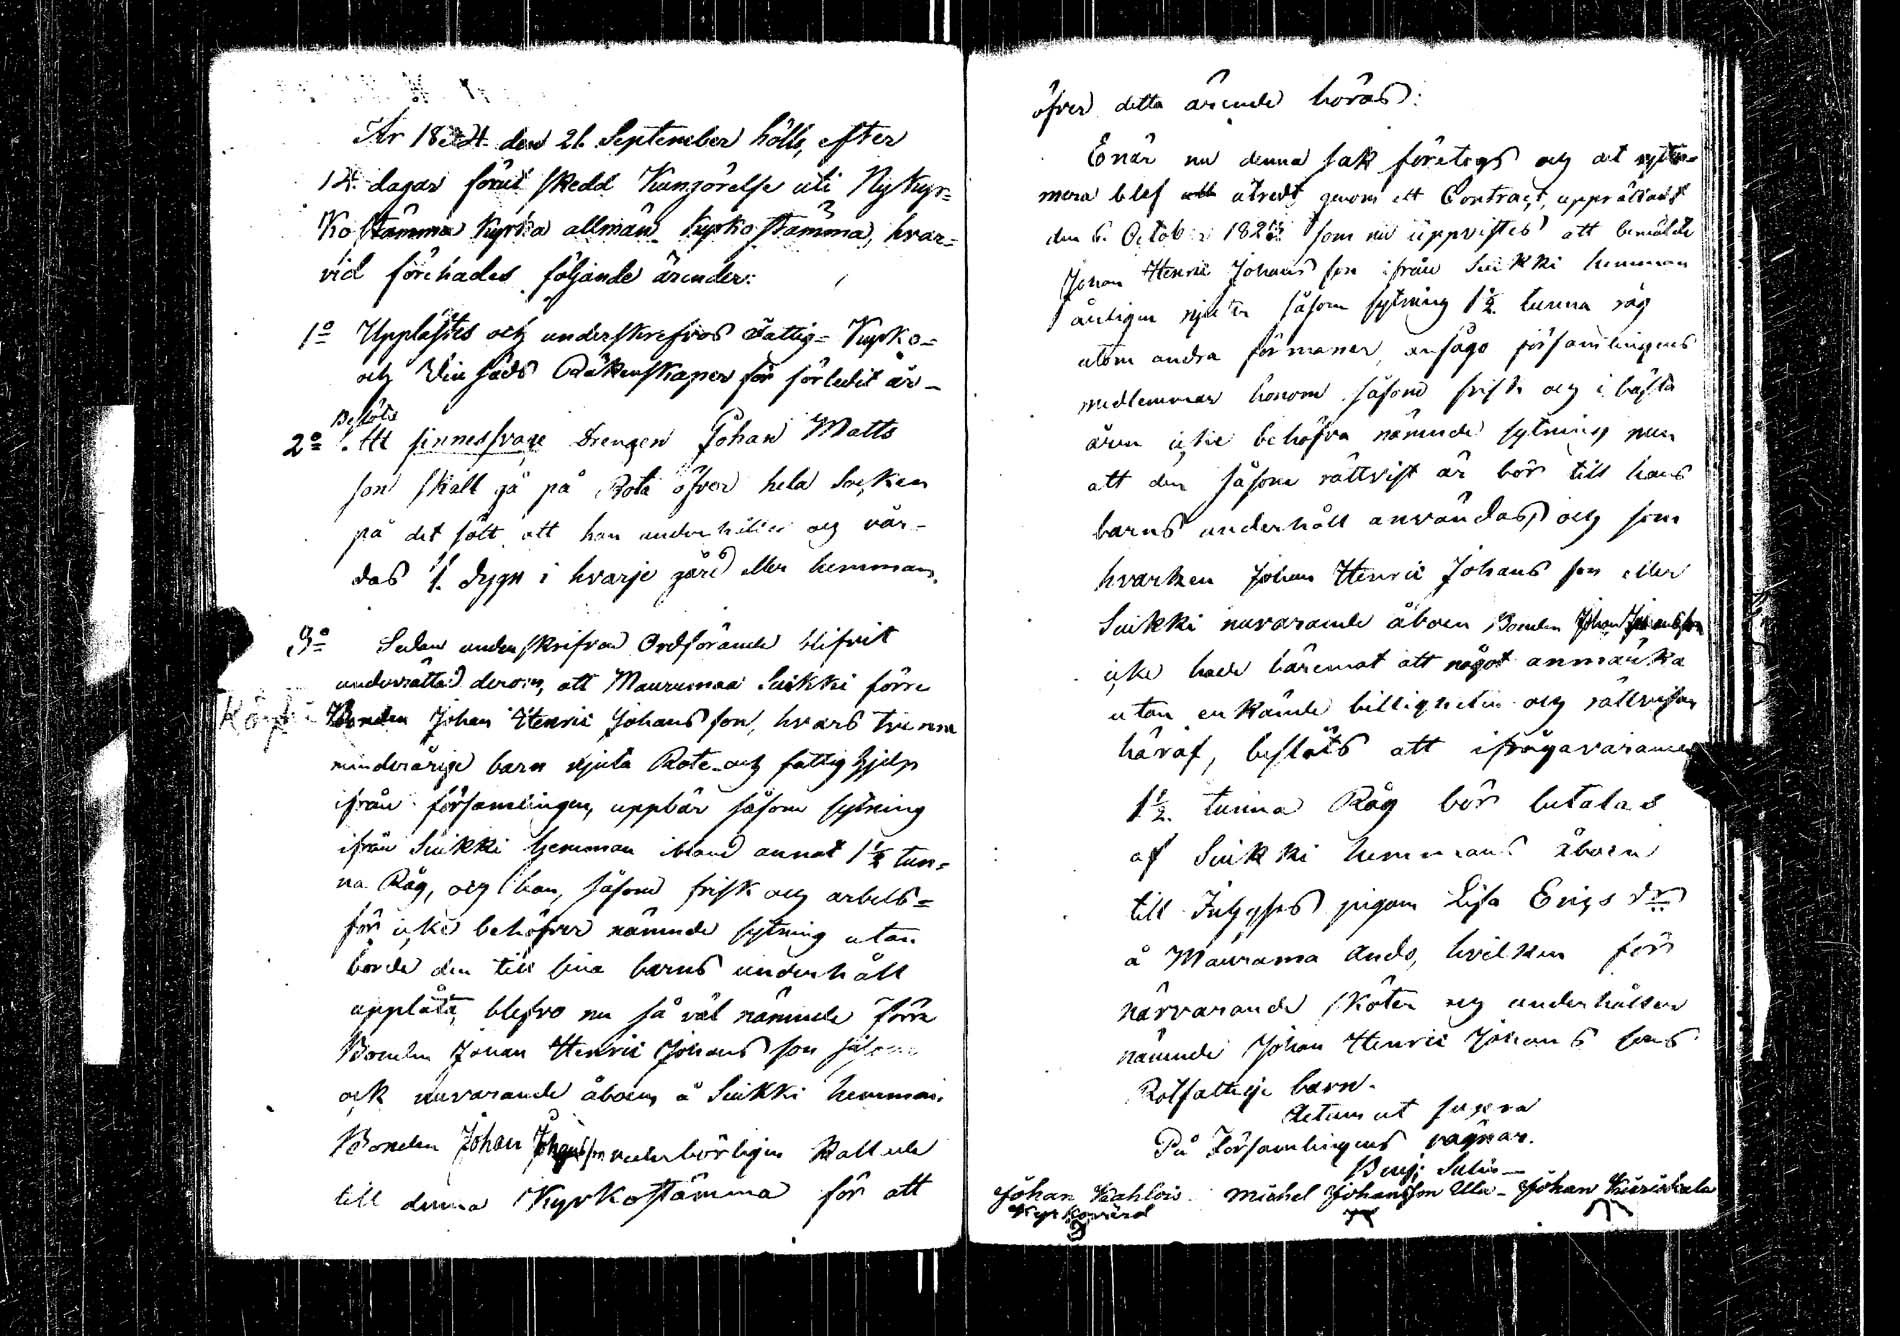 År 1824 den 26 September hölls, efter
14 dagar förut skedd Kungörelse uti Nykyr-
ko stämma kyrka allmän kyrko stämma, hvar-
vid förehades följande ärender:
1o Upplästes och underskrefvos Fattig- Kyrko-
och Vin säds Räkenskaper för förledit år-
Beslöts
2o Att sinnessvage Drengen Johan Matts
son skall gå på Rota öfver hela Socken
på det sätt att han underhålles och vår-
das 1. dygn i hvarje gård eller hemman.
3o Sedan underskrifven Ordförande blifvit
underrättad derom, att Maurumaa Suikki förre
Bonden Johan Henric Johans son, hvars trenne
minderårige barn njuta Rote- och fattig hjelp
ifrån församlingen, uppbär såsom sytning
ifrån Suikki hemman ibland annat 1 1/2 tun-
na Råg, och han, såsom frisk och arbets-
för icke behöfver nämnde sytning utan
borde den till sina barns underhåll
upplåta, blefvo nu så väl nämnde förre
Bonden Johan Henric Johans son såsom
ock nuvarande åboen å Suikki hemman
Bonden Johan Johansson vederbörligen kallade
till denna Kyrkostämma för att
öfver detta ärende höras:
Enär nu denna sak företogs och det ytter-
mera blef utredt genom ett Contract, upprättadt
den 6. October som nu uppvistes att bemälde
Johan Henric Johans son ifrån Suikki hemman
årligen njuter såsom sytning 1 1/2 tunna råg
utom andra förmåner, ansågo församlingens
medlemmar honom såsom frisk och i bästa
åren icke behöfva nämnde sytning men
att den såsom rättvist är bör till hans
barns underhåll användas, och som
hvarken Johan Henric Johans son eller
Suikki nuvarande åboen Bonden Johan Johansson
icke hade häremot att något anmärka
utan erkände billigheten och rättvisan
häraf, beslöts att ifrågavarande
1 1/2 tunna Råg bör betalas
af Suikki hemmans åboen
till Inhyses pigan Lisa Erics dr
å Mauruma Ands, hvilken för
närvarande sköter och underhåller
nämnde Johan Henric Johans sons
Rotfattige barn.
Actum ut supra
På Församlingens vägnar.
Benj:
Johan Michel Johansson Ulla- Johan
Kyrkovärd